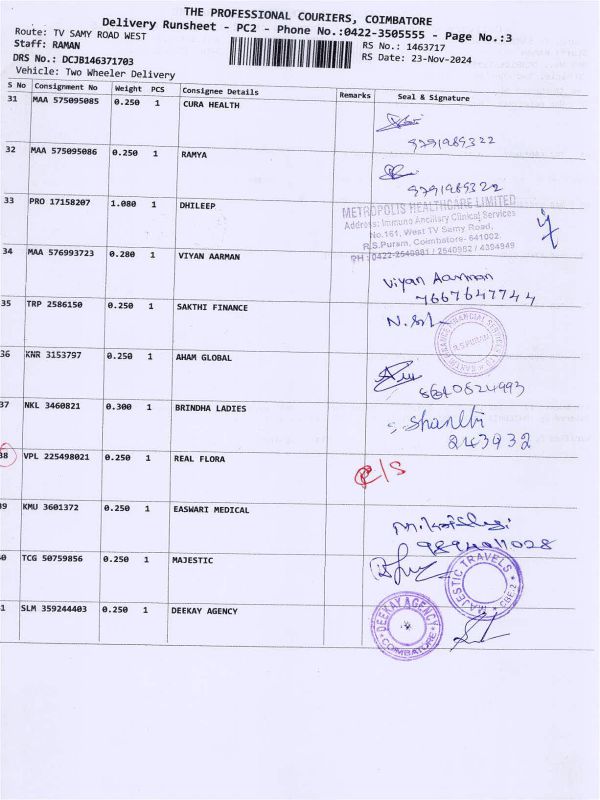 THE PROFESSIONAL COURIERS, COIMBATORE
Delivery Runsheet - PC2 - Phone No.:0422-3505555 - Page No.:3
Route: TV SAMY ROAD WEST
Staff: RAMAN
RS No.: 1463717
DRS No.: DCJB146371703
RS Date: 23-Nov-2024
Vehicle: Two Wheeler Delivery
S No Consignment No Weight PCS Consignee Details Remarks Seal & Signature
31 MAA 575095085 0.250 1 CURA HEALTH
9791989322
32 MAA 575095086 0.250 1 RAMYA
9791989322
33 PRO 17158207 1.080 1 DHILEEP
METROPOLIS HEALTHCARE LIMITED
Address: Immuno Ancillary Clinical Services
No.161, West TV Samy Road,
R.S.Puram, Coimbatore- 641002
PH : 0422-2540981 / 2540982 / 4394949
34 MAA 576993723 0.280 1 VIYAN AARMAN
Viyan Aarman
7667647744
35 TRP 2586150 0.250 1 SAKTHI FINANCE
R.S PURAM
36 KNR 3153797 0.250 1 AHAM GLOBAL
37 NKL 3460821 0.300 1 BRINDHA LADIES
S. Shanthi
243932
38 VPL 225498021 0.250 1 REAL FLORA
C/S
39 KMU 3601372 0.250 1 EASWARI MEDICAL
40 TCG 50759856 0.250 1 MAJESTIC
MAJESTIC TRAVELS CBE-2
41 SLM 359244403 0.250 1 DEEKAY AGENCY
DEEKAY AGENCY COIMBATORE